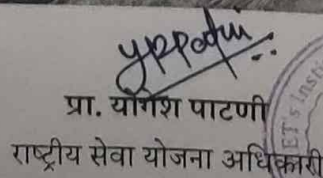 प्रा. योगेश पाटणी
राष्ट्रीय सेवा योजना अधिकारी
ET's Insti